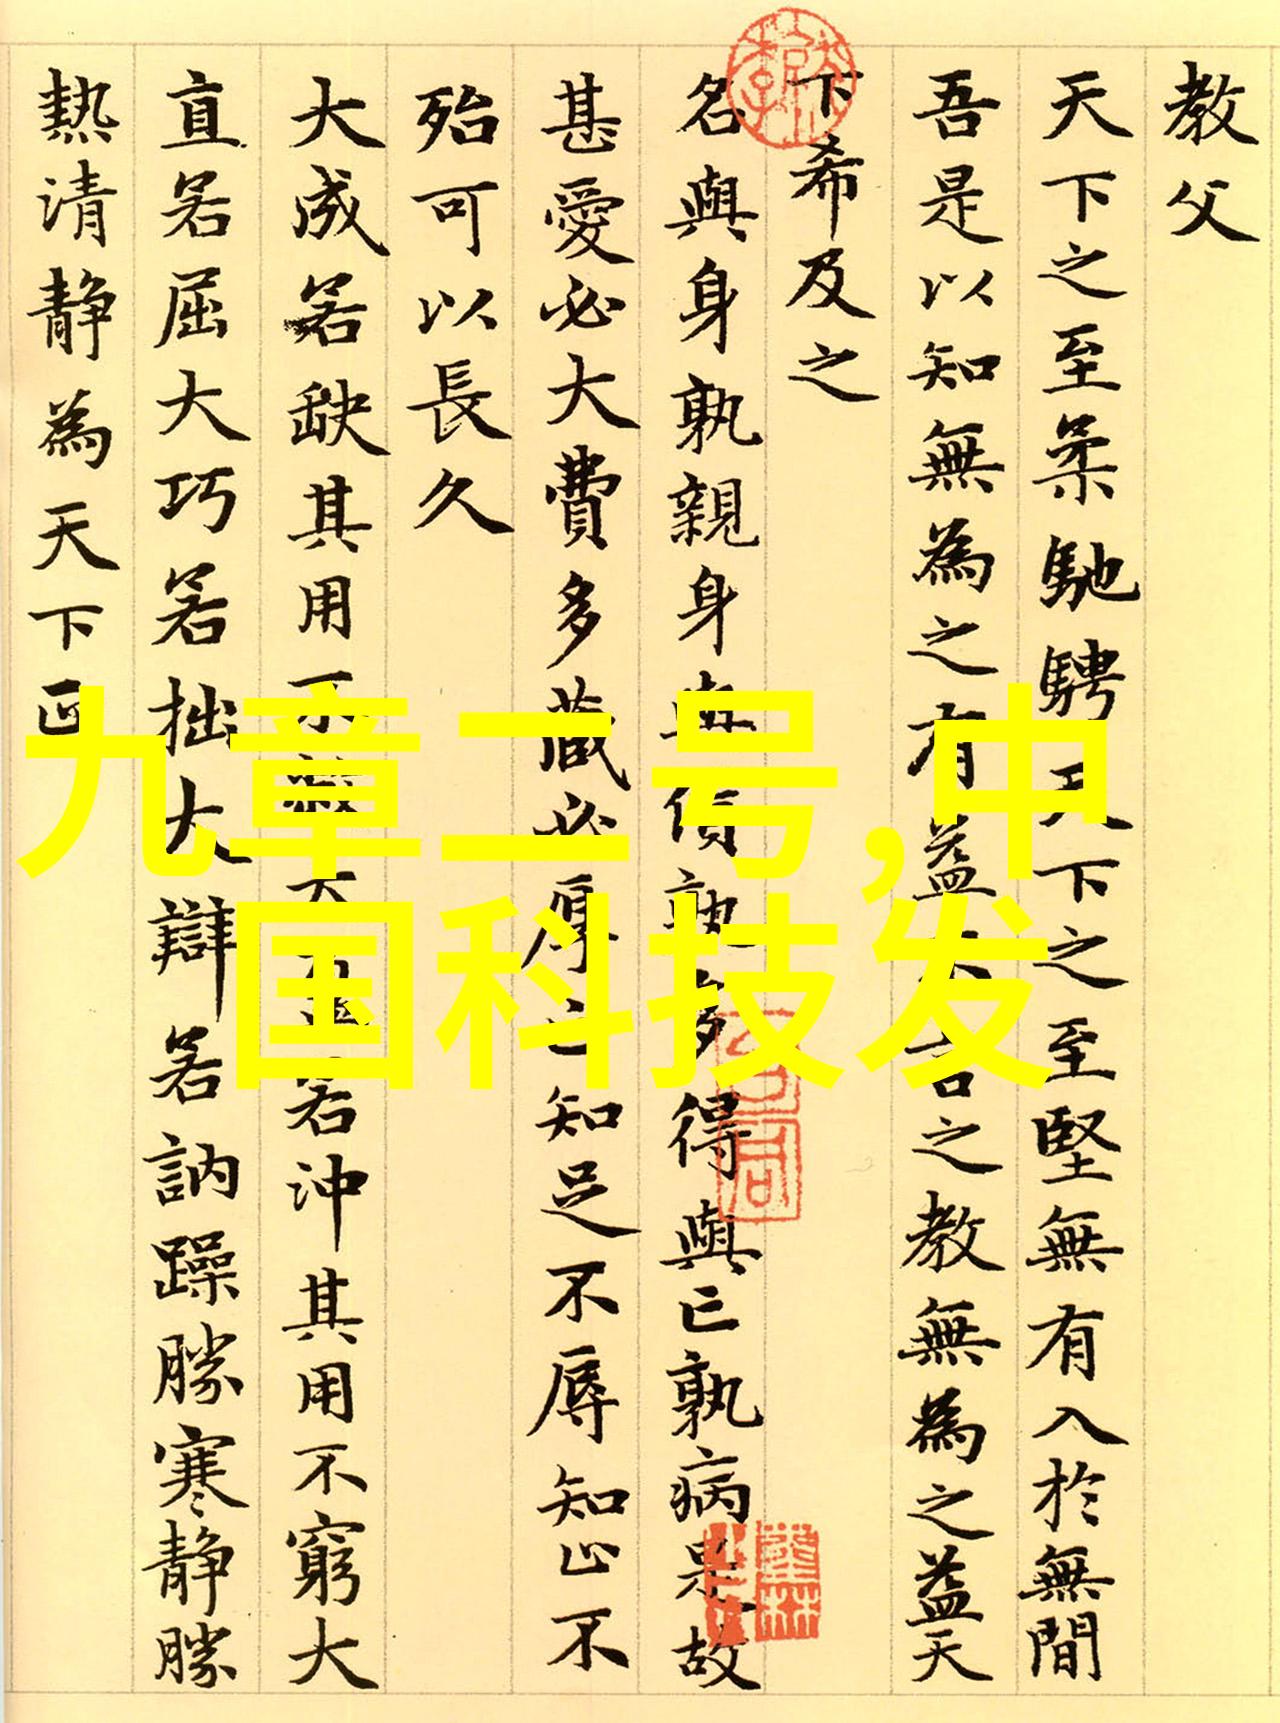 教父
天下之至柔馳騁天下之至堅無有入於無間
吾是以知無為之有益不言之教無為之益天
下希及之
名與身孰親身與貨孰多得與亡孰病是故
甚愛必大費多藏必厚亡知足不辱知止不
殆可以長久
大成若缺其用不弊大盈若沖其用不窮大
直若屈大巧若拙大辯若訥躁勝寒靜勝
熱清靜為天下正
九章二号,中
国科技发